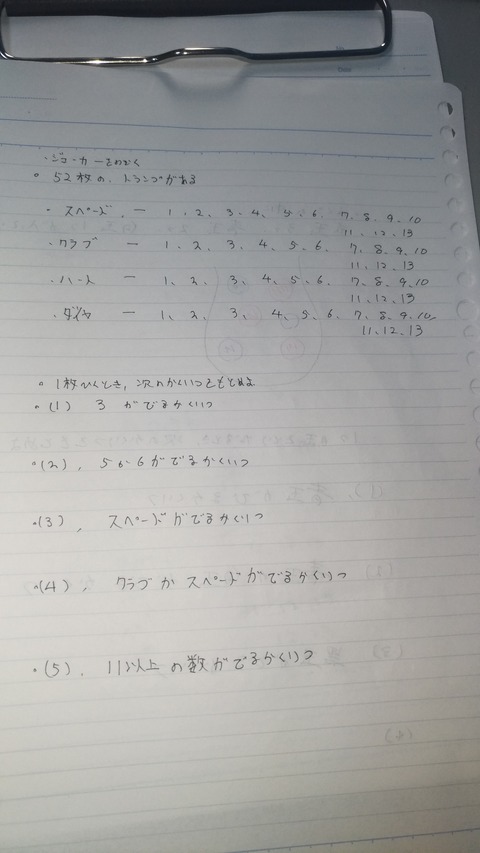 ・ジョーカーをのぞく
○ 52枚の、トランプがある
・スペード、ー 1、2、3、4、5、6、7、8、9、10
11、12、13
・クラブ ー 1、2、3、4、5、6、7、8、9、10
11、12、13
・ハート ー 1、2、3、4、5、6、7、8、9、10
11、12、13
・ダイヤ ー 1、2、3、4、5、6、7、8、9、10、
11、12、13
○ 1枚ひくとき、次のかくりつをもとめよ
・(1) 3 がでるかくりつ
・(2)、5か6がでるかくりつ
・(3)、スペードがでるかくりつ
・(4)、クラブか スペードがでるかくりつ
・(5)、11以上の数がでるかくりつ